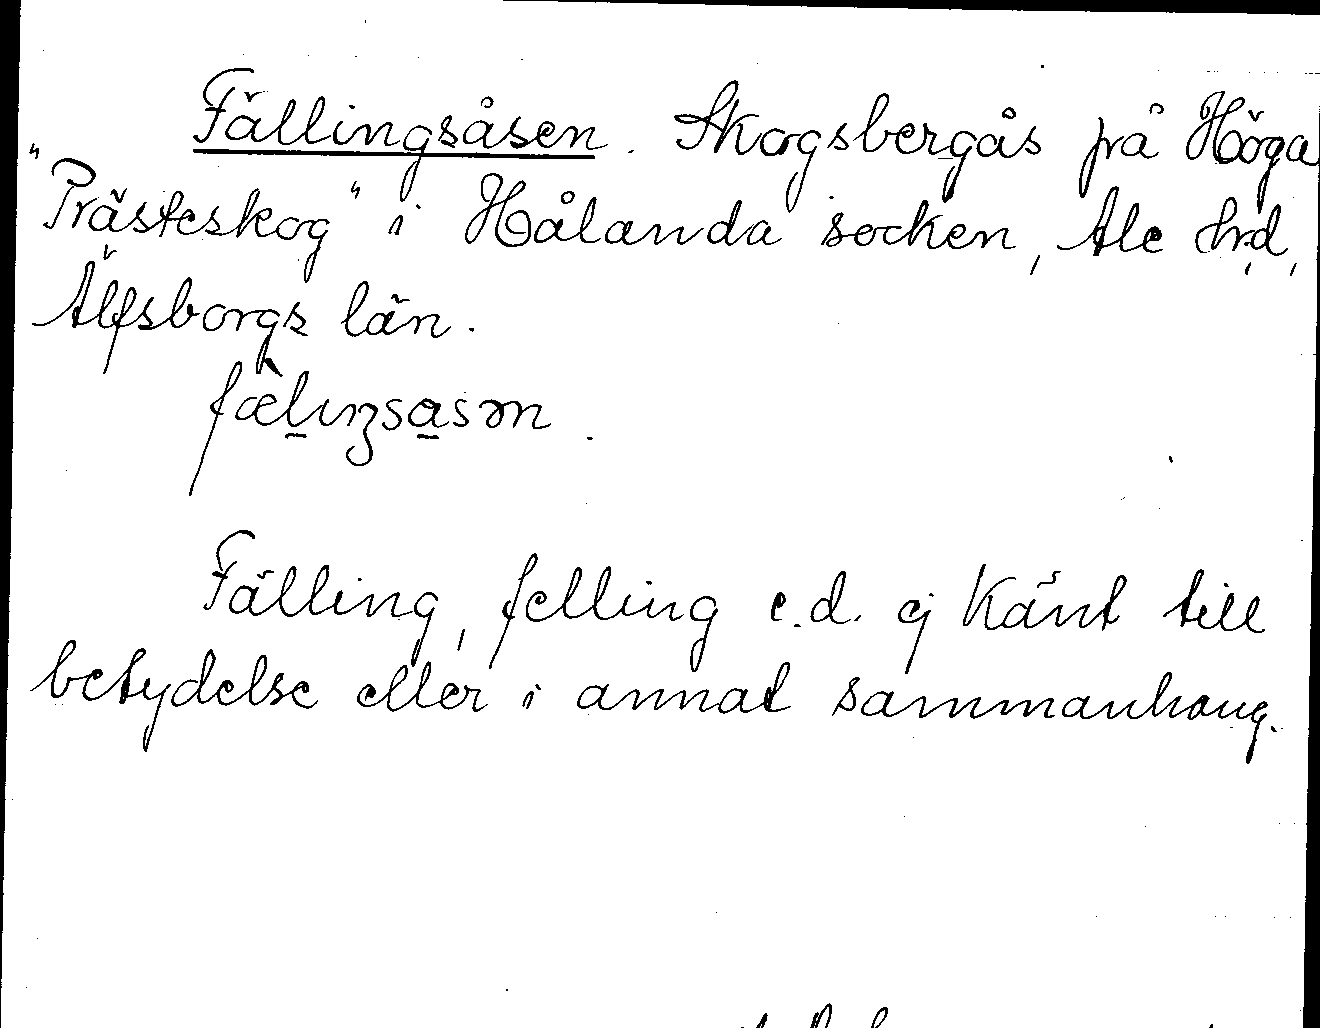 Fällingsåsen. Skogsbergås på Höga
"Prästeskog" i Hålanda socken, Ale hrd,
Älfsborgs län.

Fälling, felling e.d. ej känt till
betydelse eller i annat sammanhang.